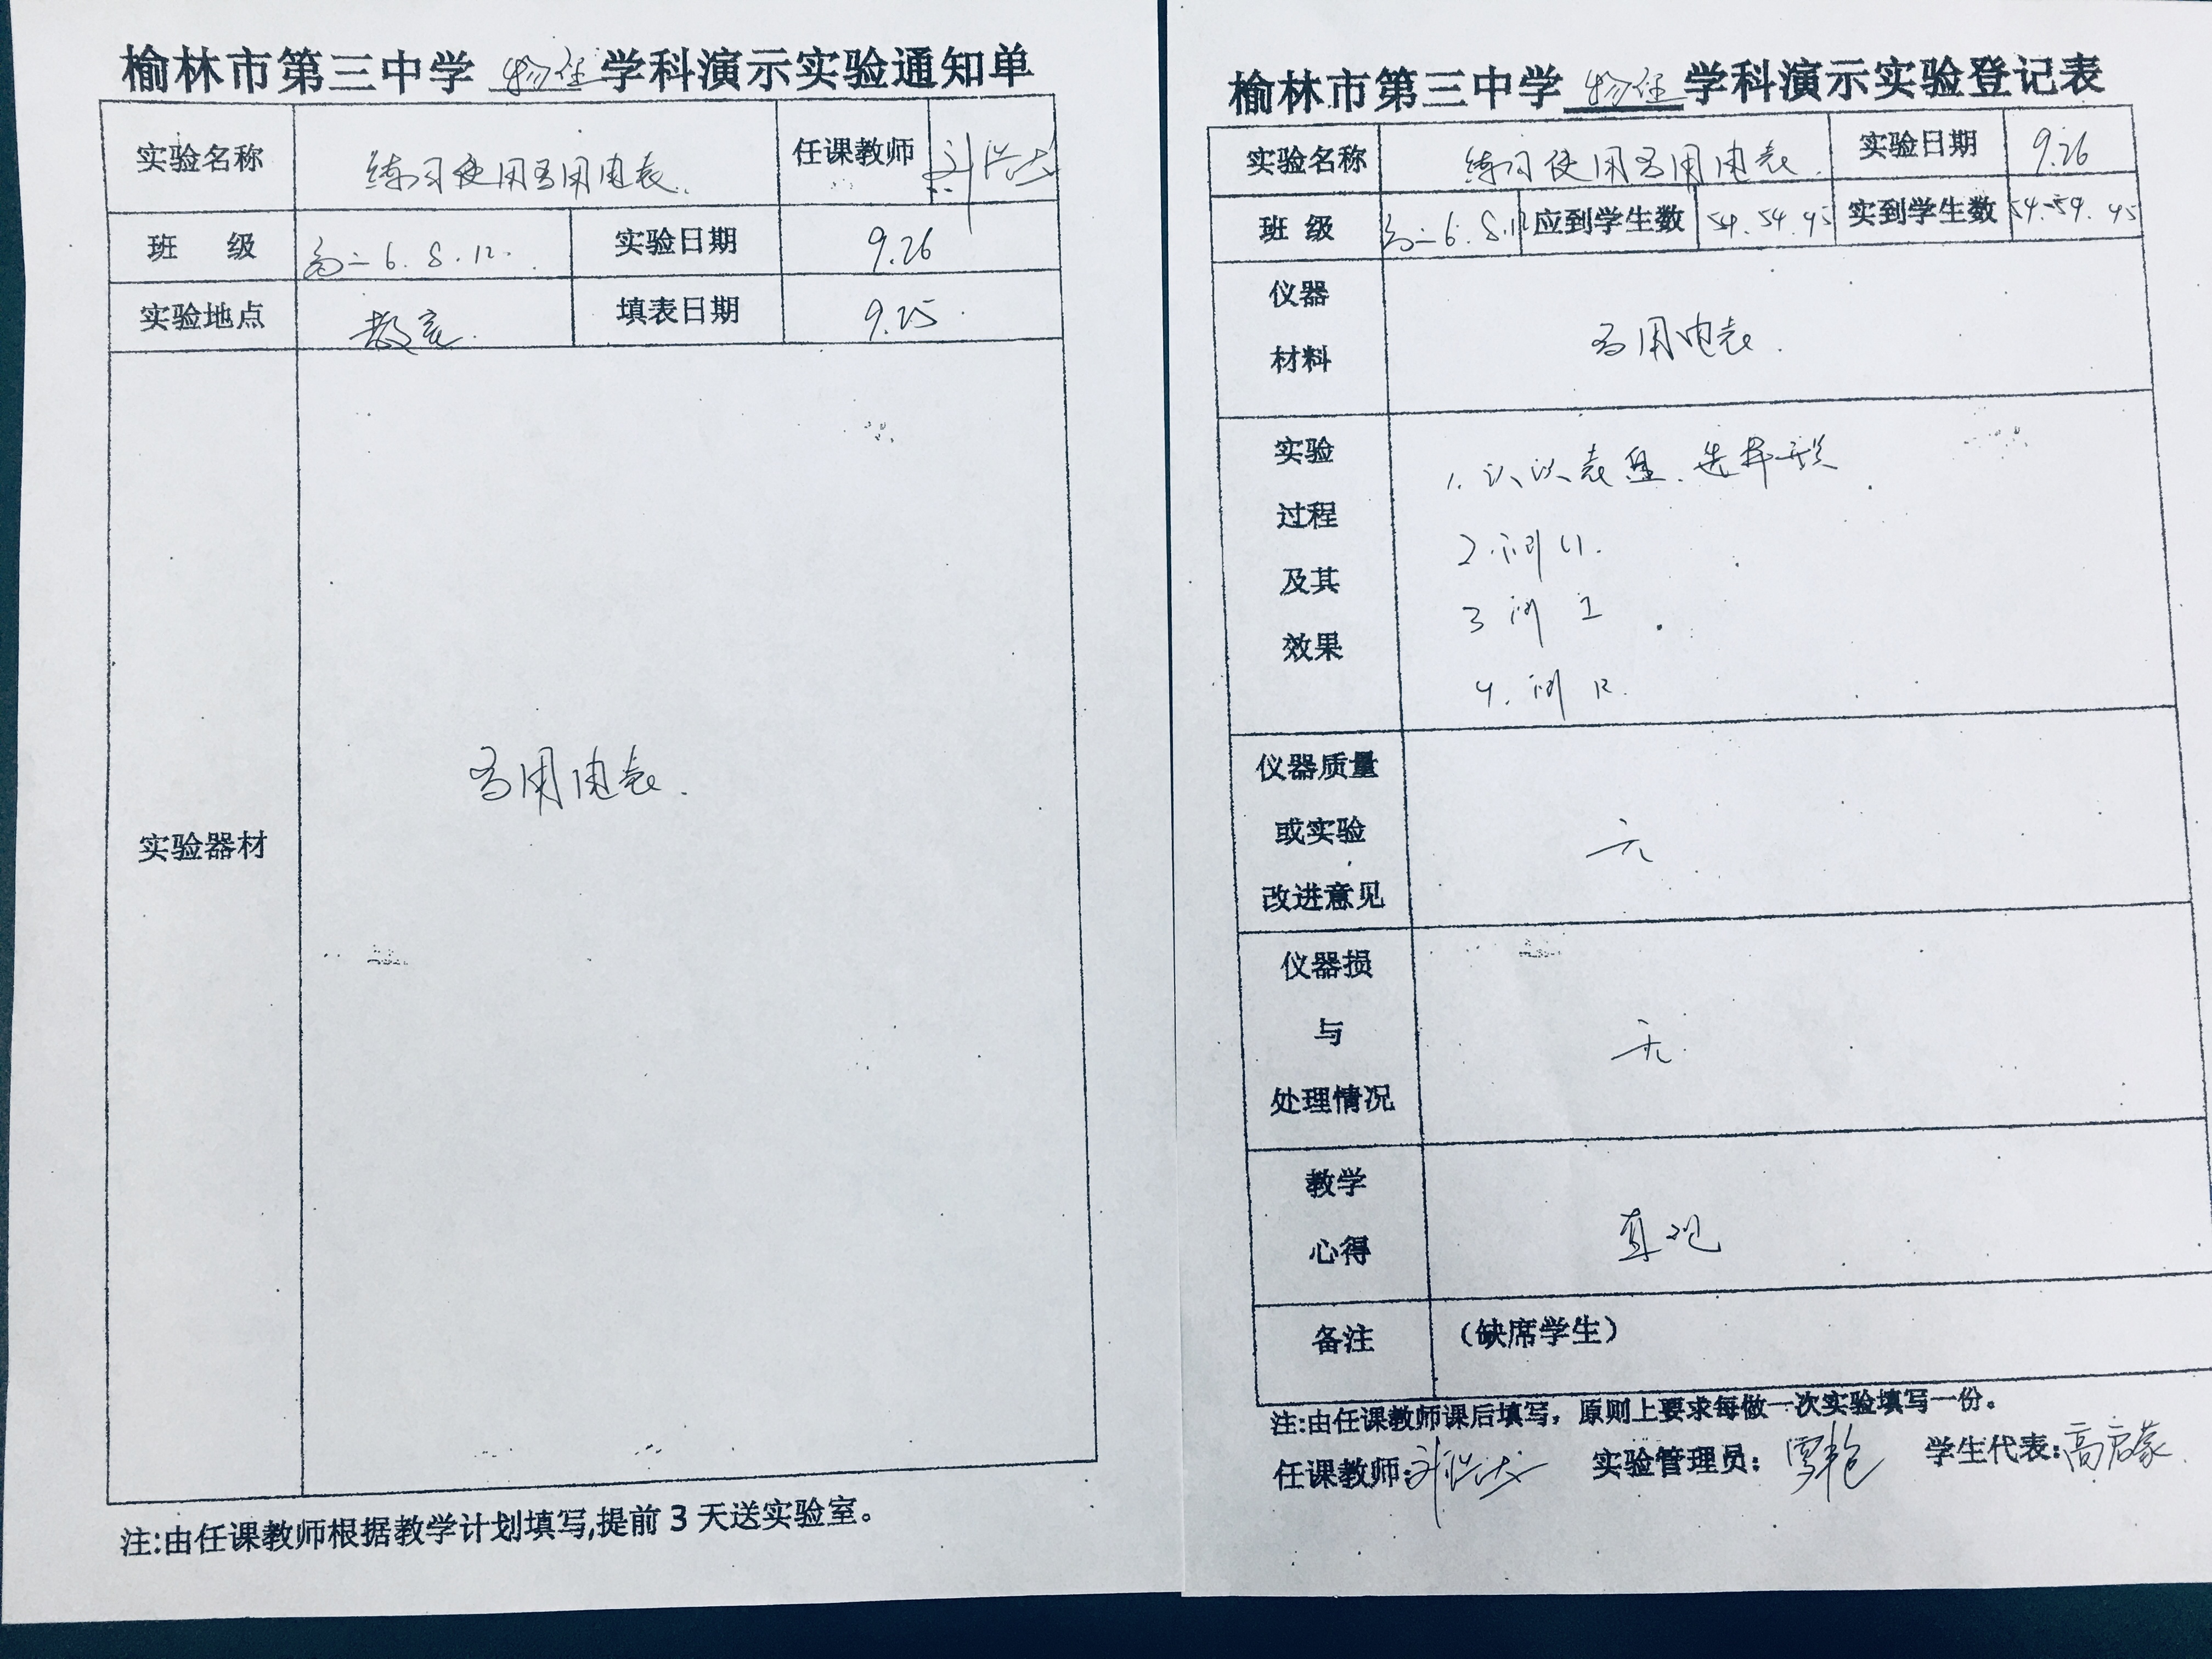 榆林市第三中学 物理 学科演示实验通知单
实验名称 练习使用多用电表. 任课教师
班 级 高二 6. 8. 12. 实验日期 9.26
实验地点 教室. 填表日期 9.25
实验器材 多用电表.
注:由任课教师根据教学计划填写,提前 3 天送实验室。
榆林市第三中学 物理 学科演示实验登记表
实验名称 练习使用多用电表. 实验日期 9.26
班 级 高二 6. 8. 12 应到学生数 54. 54. 45 实到学生数 54. 54. 45
仪器
材料
多用电表.
实验
过程
及其
效果
1. 认识表盘、选择开关
2. 测 U.
3 测 I
4. 测 R.
仪器质量
或实验
改进意见
无
仪器损
与
处理情况
无.
教学
心得
直观
备注 （缺席学生）
注:由任课教师课后填写，原则上要求每做一次实验填写一份。
任课教师: 实验管理员: 学生代表:高启蒙